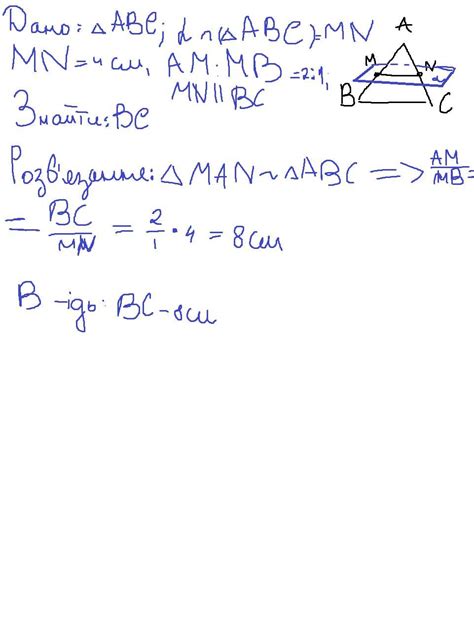 Дано: △ABC; α ∩ (△ABC)=MN
MN = 4 см, AM:MB =2:1,
MN || BC
Знайти: BC
A
M N
α
B C
Розв'язання: △MAN ~ △ABC => AM/MB =
= BC/MN = 2/1 • 4 = 8 см
В-ідь: BC - 8см